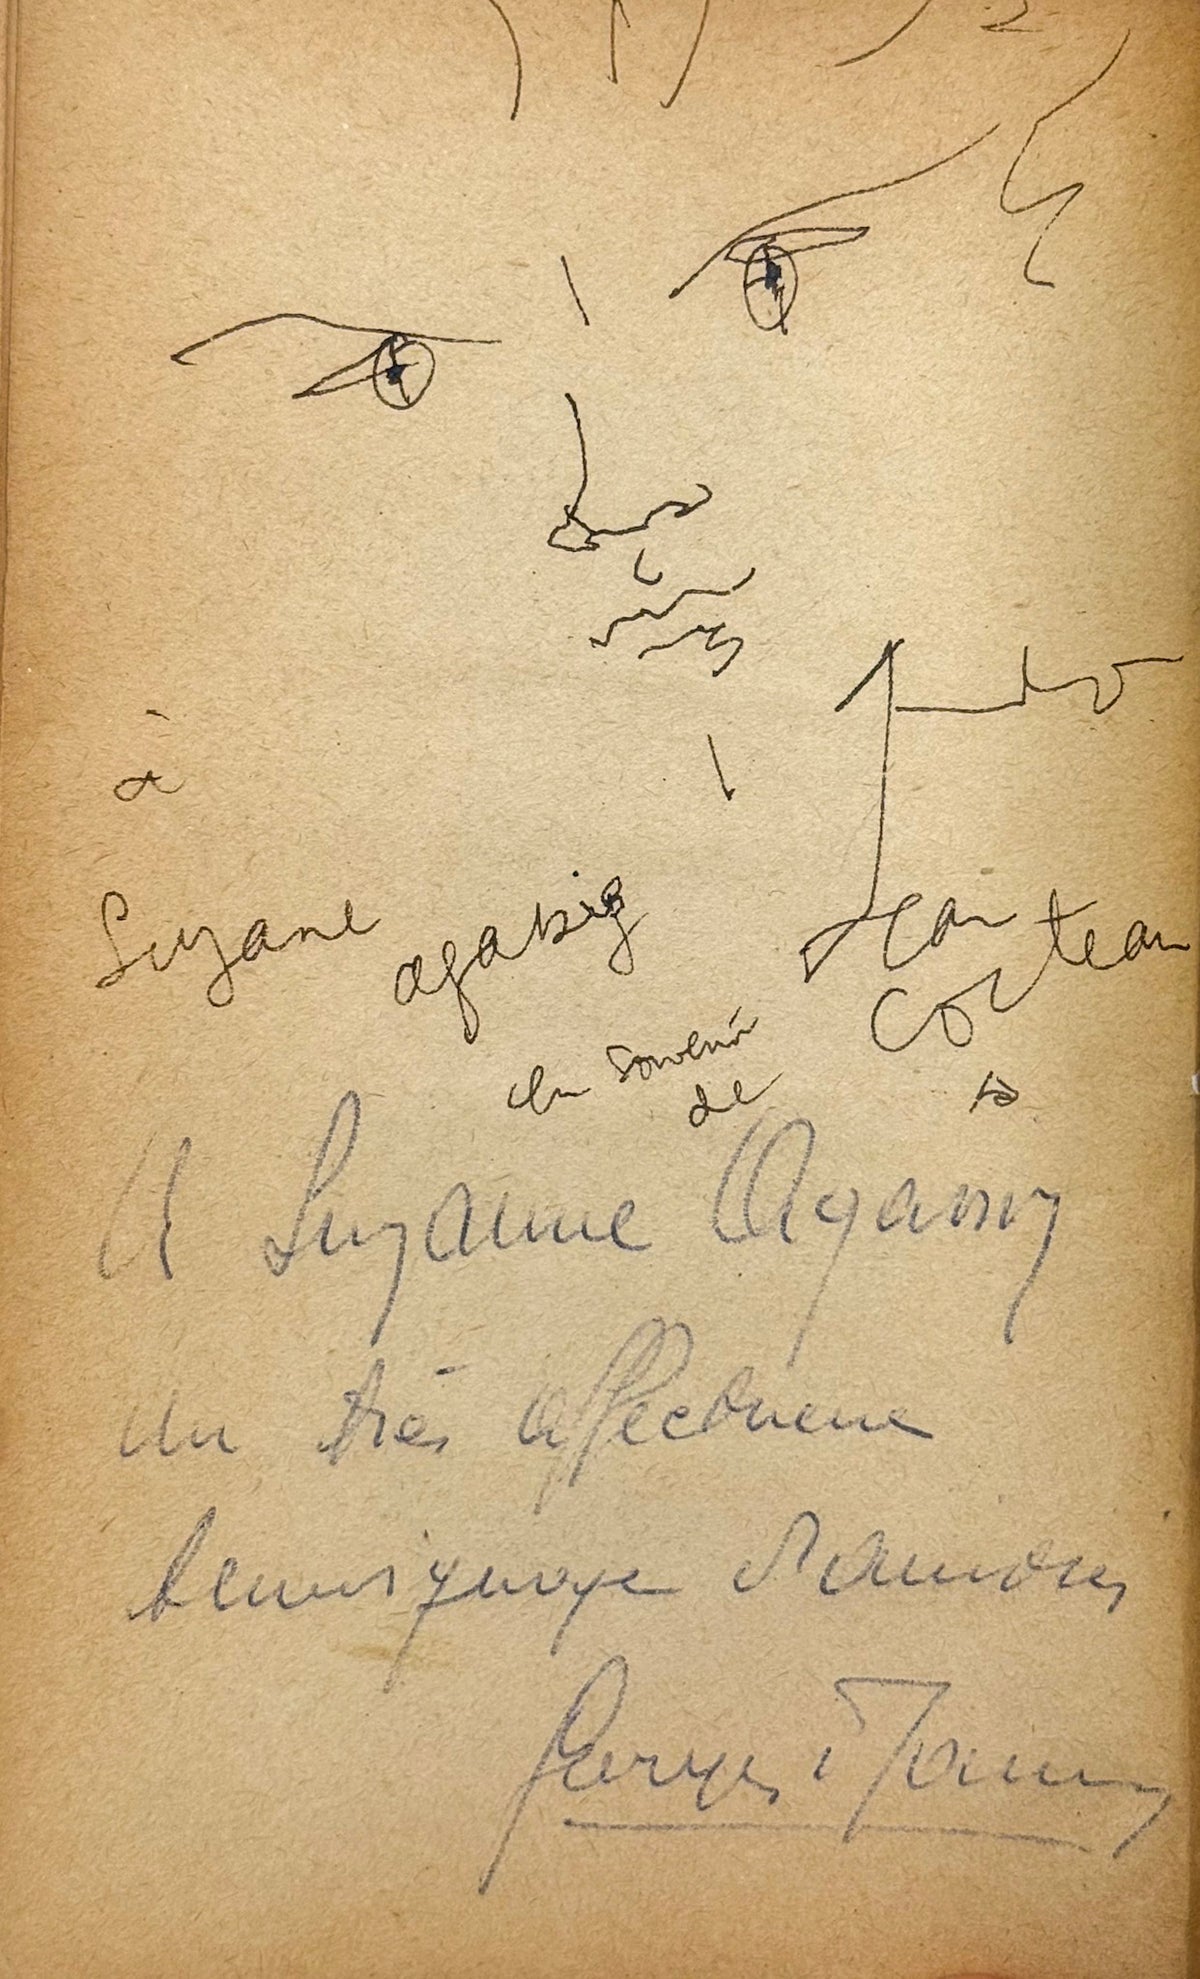 à
Suzane agassiz
en souvenir
de
Jean
Cocteau
A Suzanne Agassiz
un très affectueux
témoignage d'amitié
Georges